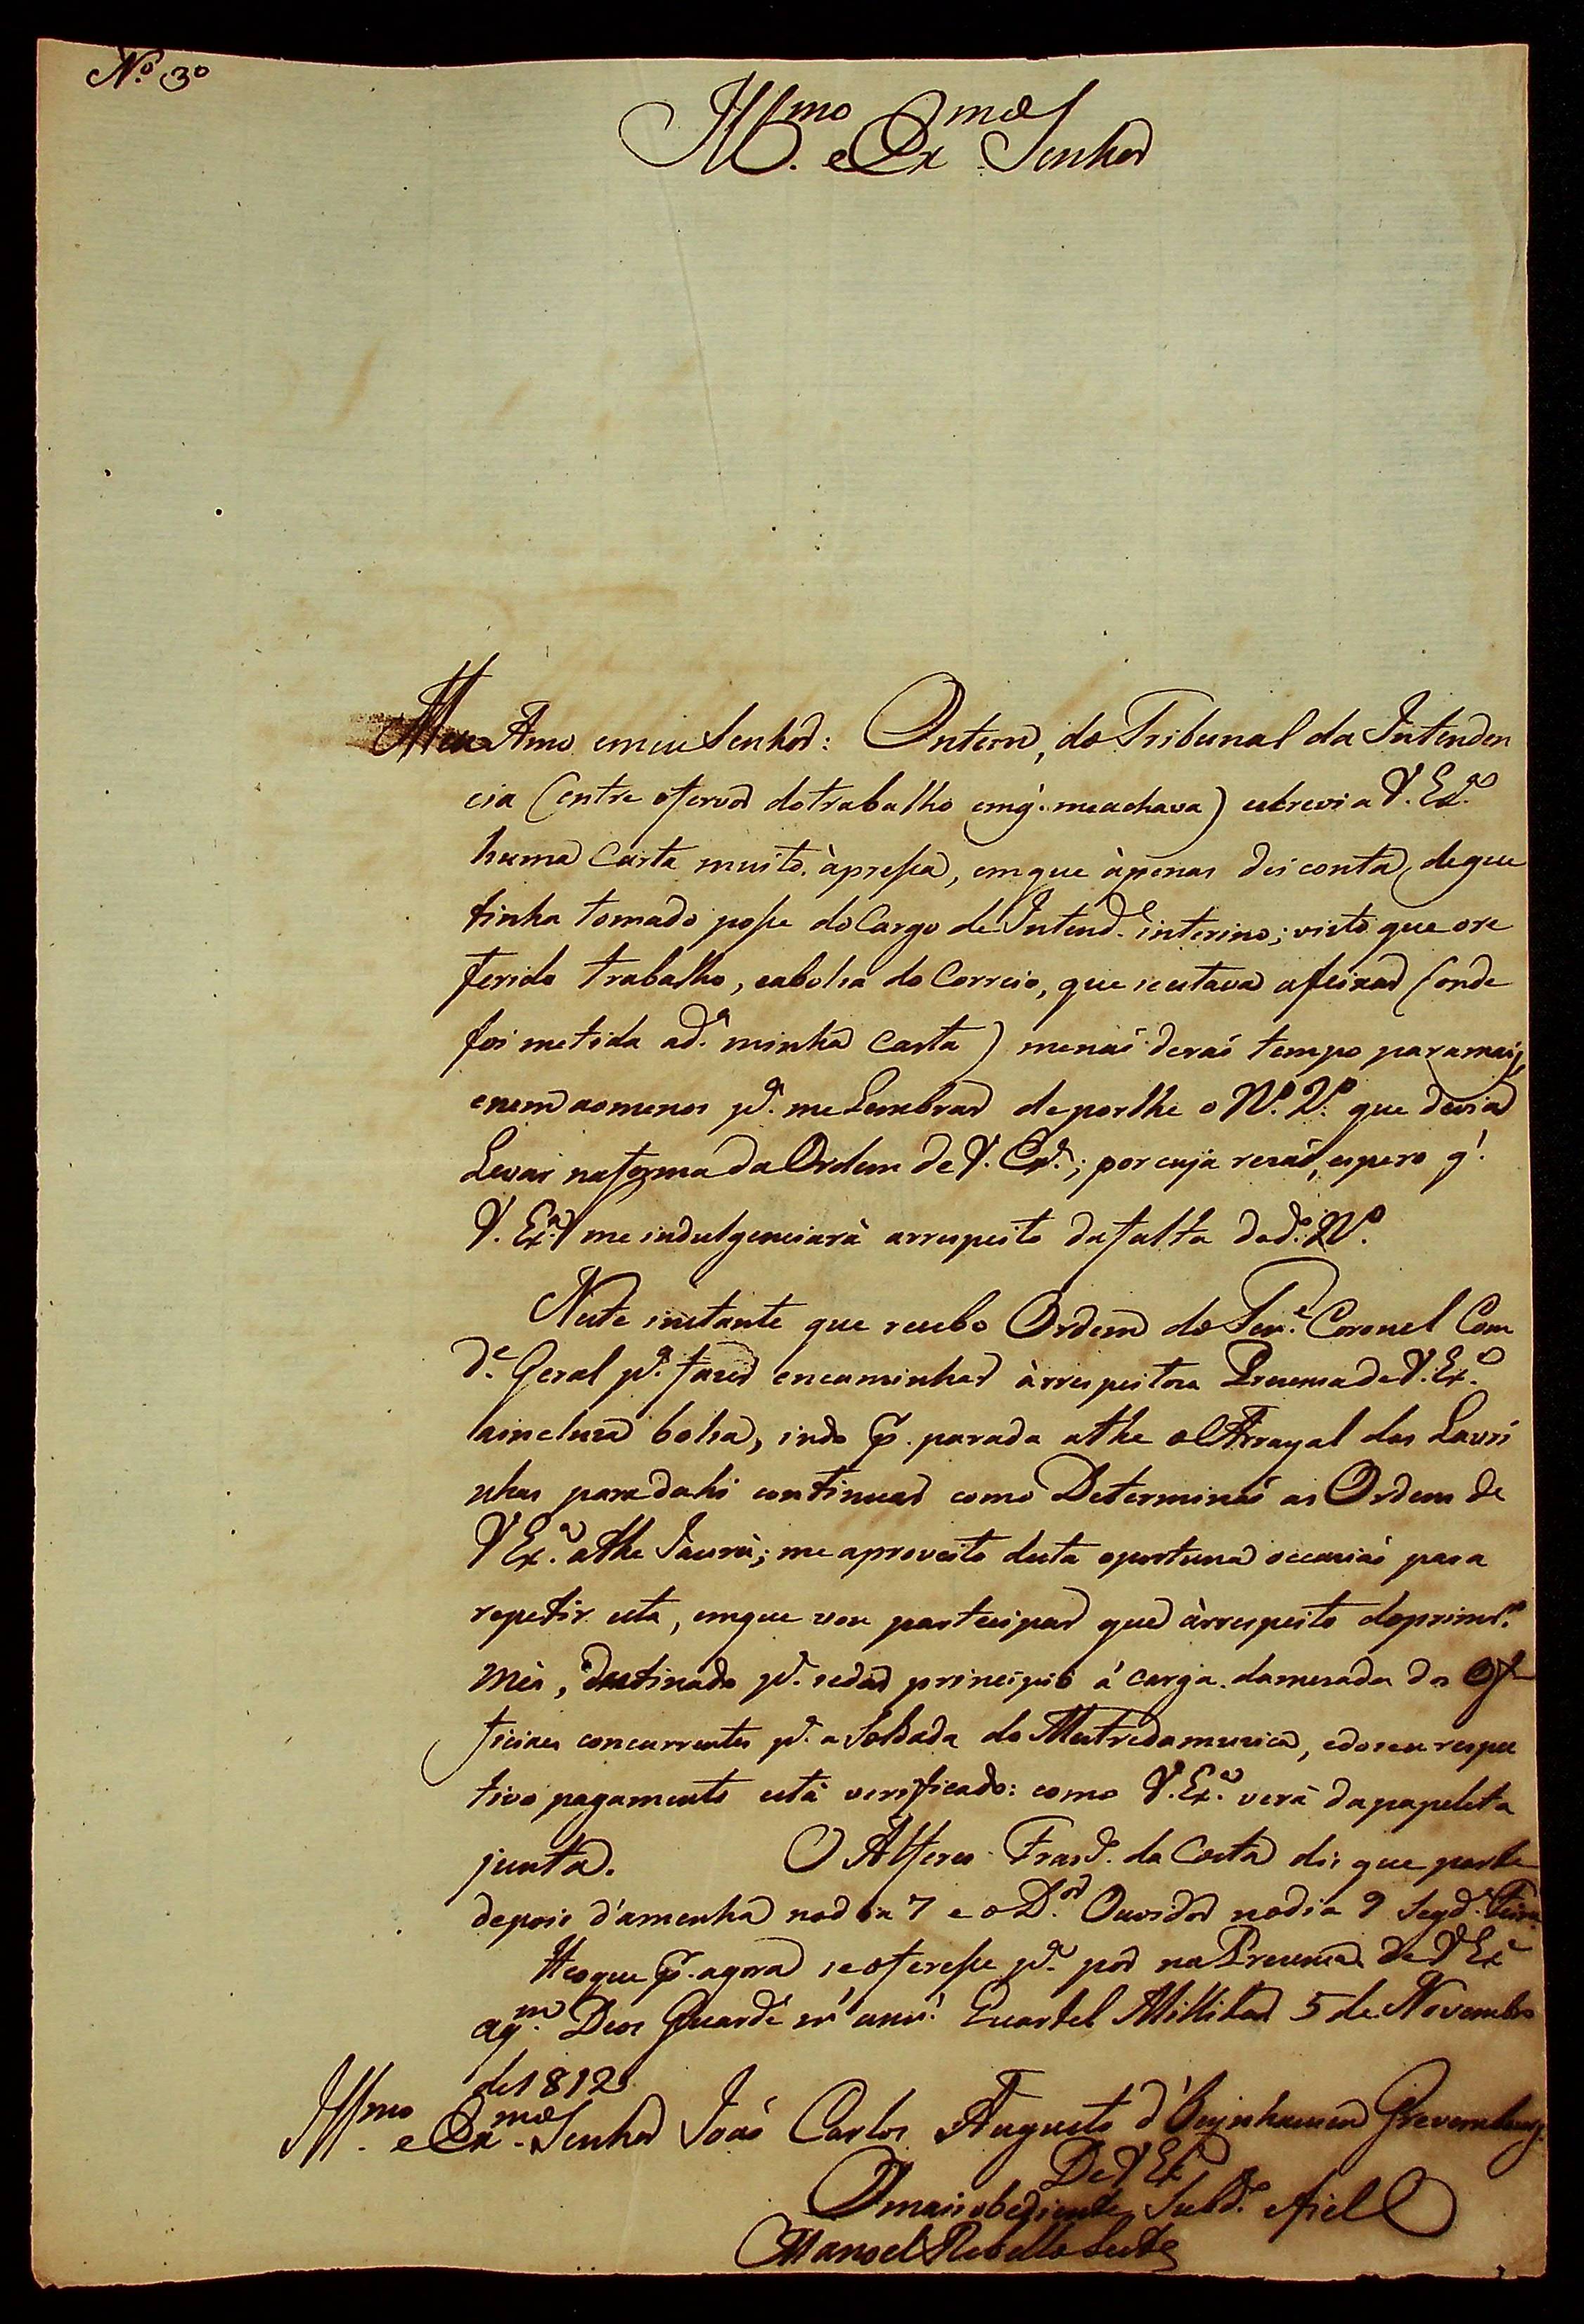 N.º 3º
Ill.mo e Ex.mo Senhor
Meu Amo emeu Senhor: Ontem, do Tribunal da Intenden
cia (entre ofervor dotrabalho emq̃. meachava) escrevi a V. Ex.ª
huma Carta muito àpressa, emque àpenas dei conta, deque
tinha tomado posse do Cargo de Intend.e interino; visto que ore
ferido trabalho, eabolsa do Correio, que seestava afeixar (onde
foi metida ad.ª minha Carta) menaõ deraõ tempo paramais,
enem aomenos p.ª me Lembrar deporlhe o N.º 2.º que devia
Levar naforma da Ordem de V. Ex.ª; porcuja resaõ, espero q̃.
V. Ex.ª me indulgenciarà arrespeito dafalta dod.º N.º
Neste instante que recebo Ordem do Ten.e Coronel Com
d.e Geral p.ª fazer encaminhar àrrespeitoza Prezensa de V. Ex.ª
ainclusa bolsa, indo p̃. parada athe o Arrayal das Lavri
nhas para dahi continuar como Determinaõ as Ordens de
V Ex.ª athe Jaurú; me aproveito desta oportuna occasiaõ para
repetir esta, emque vou partecipar que àrrespeito doprimr.º
Mès, destinado p.ª sedar principio á carga damesada dos Of
ficiaes concurrentes p.ª a Soldada do Mestredamusica, edoseu respec
tivo pagamento està verificado: como V. Ex.ª verà dapapeleta
junta. O Alferes Fran.co da Costa dis que parte
depois d'amenhã nodia 7 e o D.or Ouvidor nodia 9 Segd.ª Feira
Heoque p̃. agora seoferesse p.ª por na Prezensa de V Ex.ª
aq.m Deos Guarde m.s ann.s Quartel Millitar 5 de Novembro
de 1812
Ill.mo e Ex.mo Senhor Joaõ Carlos Augusto d'Oeynhausen Grevemberg.
De V Ex.ª
Omais obediente Subd.º efiel
Manoel Rebello Leite